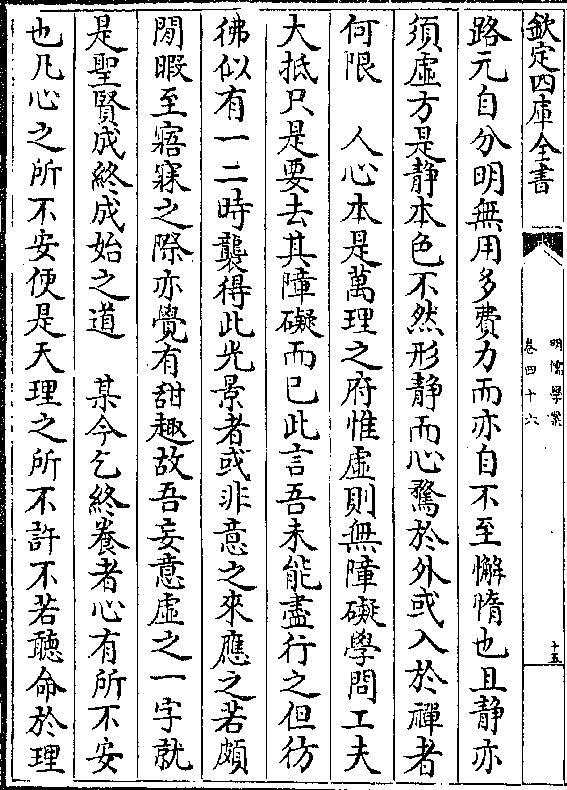 欽定四庫全書
明儒學案
卷四十六
十五
路元自分明無用多費力而亦自不至懈惰也且静亦
須虛方是静本色不然形静而心騖於外或入於禪者
何限　人心本是萬理之府惟虛則無障礙學問工夫
大抵只是要去其障礙而已此言吾未能盡行之但彷
彿似有一二時襲得此光景者或非意之來應之若頗
閒暇至寤寐之際亦覺有甜趣故吾妄意虛之一字就
是聖賢成終成始之道　某今乞終養者心有所不安
也凡心之所不安便是天理之所不許不若聽命於理